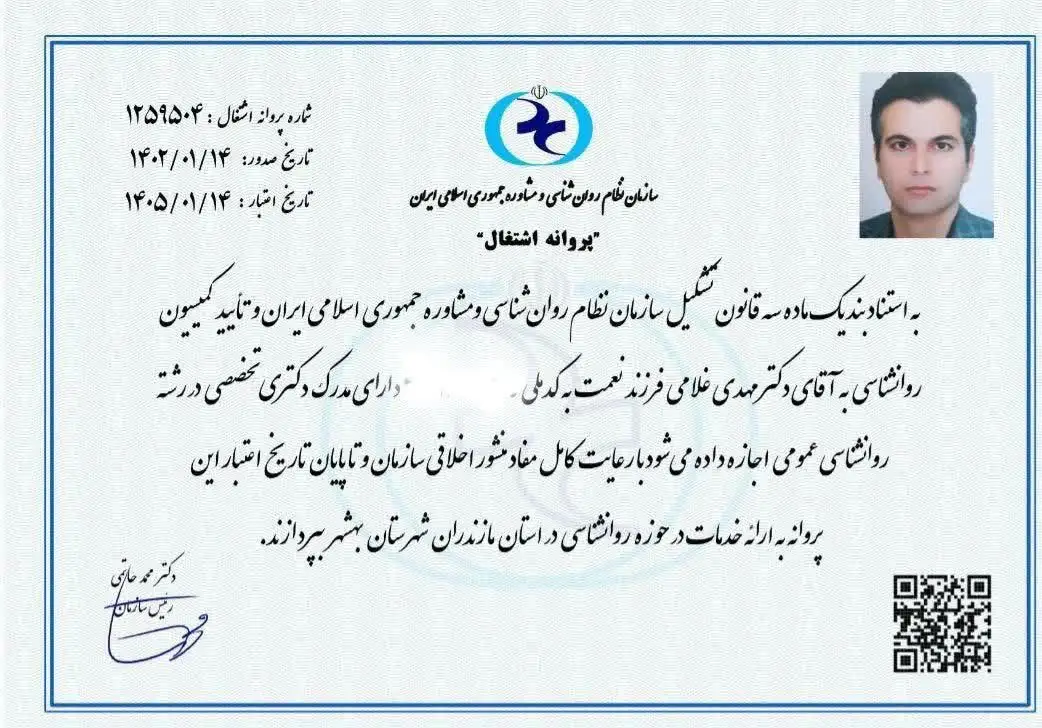 شماره پروانه اشتغال : ۱۲۵۹۵۰۴
تاریخ صدور: ۱۴۰۲/۰۱/۱۴
تاریخ اعتبار : ۱۴۰۵/۰۱/۱۴
سازمان نظام روان شناسی و مشاوره جمهوری اسلامی ایران
"پروانه اشتغال"
به استناد بند یک ماده سه قانون تشکیل سازمان نظام روان شناسی و مشاوره جمهوری اسلامی ایران و تأیید کمیسیون
روانشناسی به آقای دکتر مهدی غلامی فرزند نعمت به کد ملی دارای مدرک دکتری تخصصی در رشته
روانشناسی عمومی اجازه داده می شود با رعایت کامل مفاد منشور اخلاقی سازمان و تا پایان تاریخ اعتبار این
پروانه به ارائه خدمات در حوزه روانشناسی در استان مازندران شهرستان بهشهر بپردازند.
دکتر محمد حاتمی
رئیس سازمان